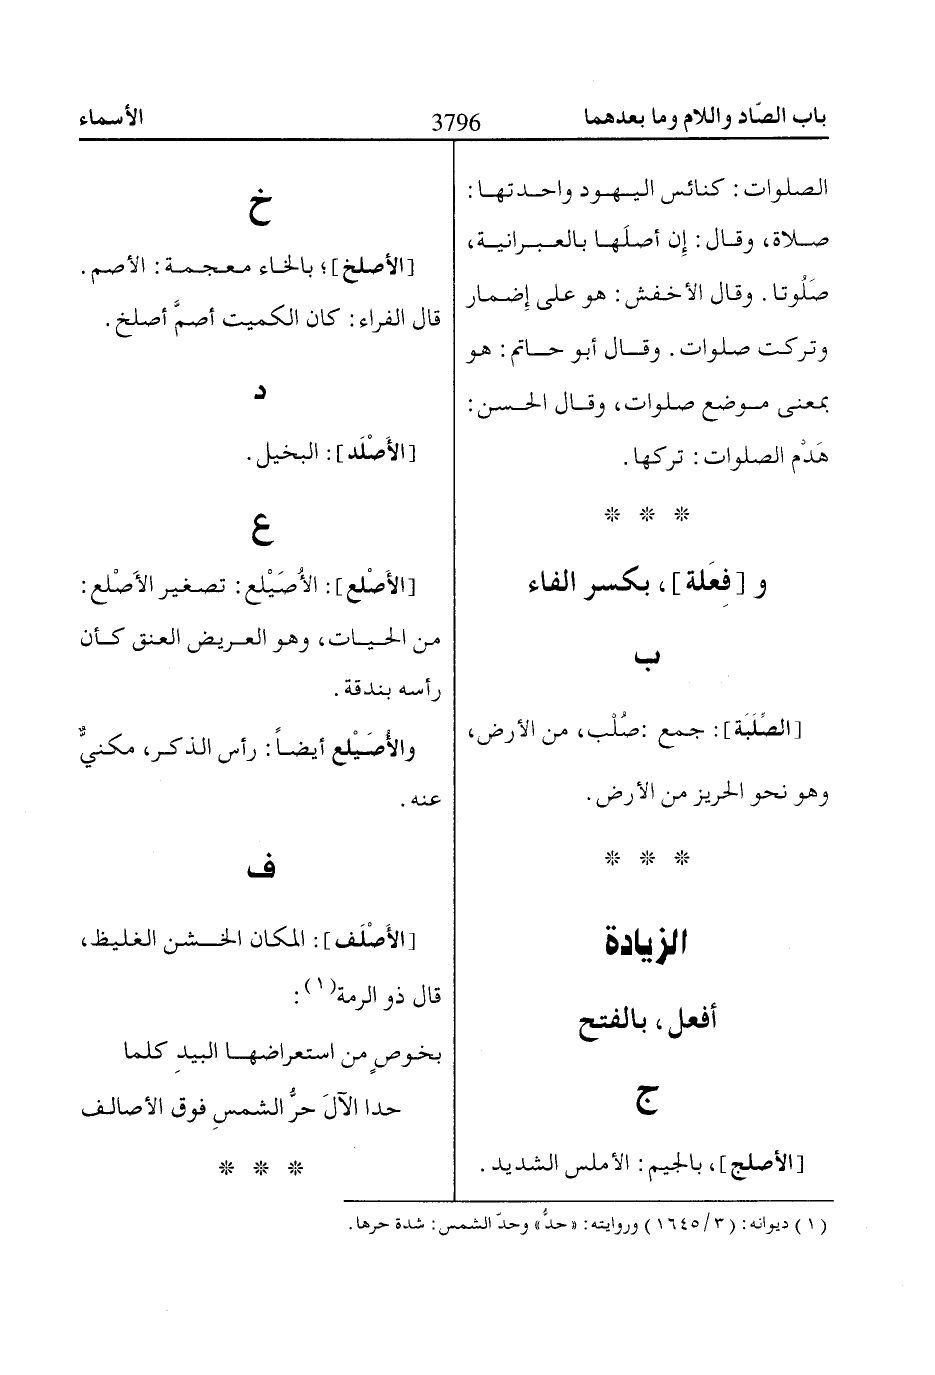 باب الصّاد واللام وما بعدهما
3796
الأسماء
الصلوات: كنائس اليهود واحدتها:
صلاة، وقال: إن أصلَها بالعبرانية،
صَلُوتا. وقال الأخفش: هو على إضمار
وتركت صلوات. وقال أبو حاتم: هو
بمعنى موضع صلوات، وقال الحسن:
هَدْم الصلوات: تركها.
* * *
و [فِعَلة]، بكسر الفاء
ب
[الصِّلَبَة]: جمع :صُلْب، من الأرض،
وهو نحو الحريز من الأرض.
* * *
الزيادة
أفعل، بالفتح
ج
[الأصلج]، بالجيم: الأملس الشديد.
خ
[الأصلخ]؛ بالخاء معجمة: الأصم.
قال الفراء: كان الكميت أصمَّ أصلخ.
د
[الأَصْلَد]: البخيل.
ع
[الأَصْلع]: الأُصَيْلع: تصغير الأَصْلع:
من الحيات، وهو العريض العنق كأن
رأسه بندقة.
والأُصَيْلع أيضاً: رأس الذكر، مكنيٌّ
عنه.
ف
[الأَصْلَف]: المكان الخشن الغليظ،
قال ذو الرمة(١):
بخوصٍ من استعراضها البيدِ كلما
حدا الآلَ حرُّ الشمسِ فوق الأصالف
* * *
(١) ديوانه: (٣/١٦٤٥) وروايته: «حدُّ» وحدّ الشمس: شدة حرها.